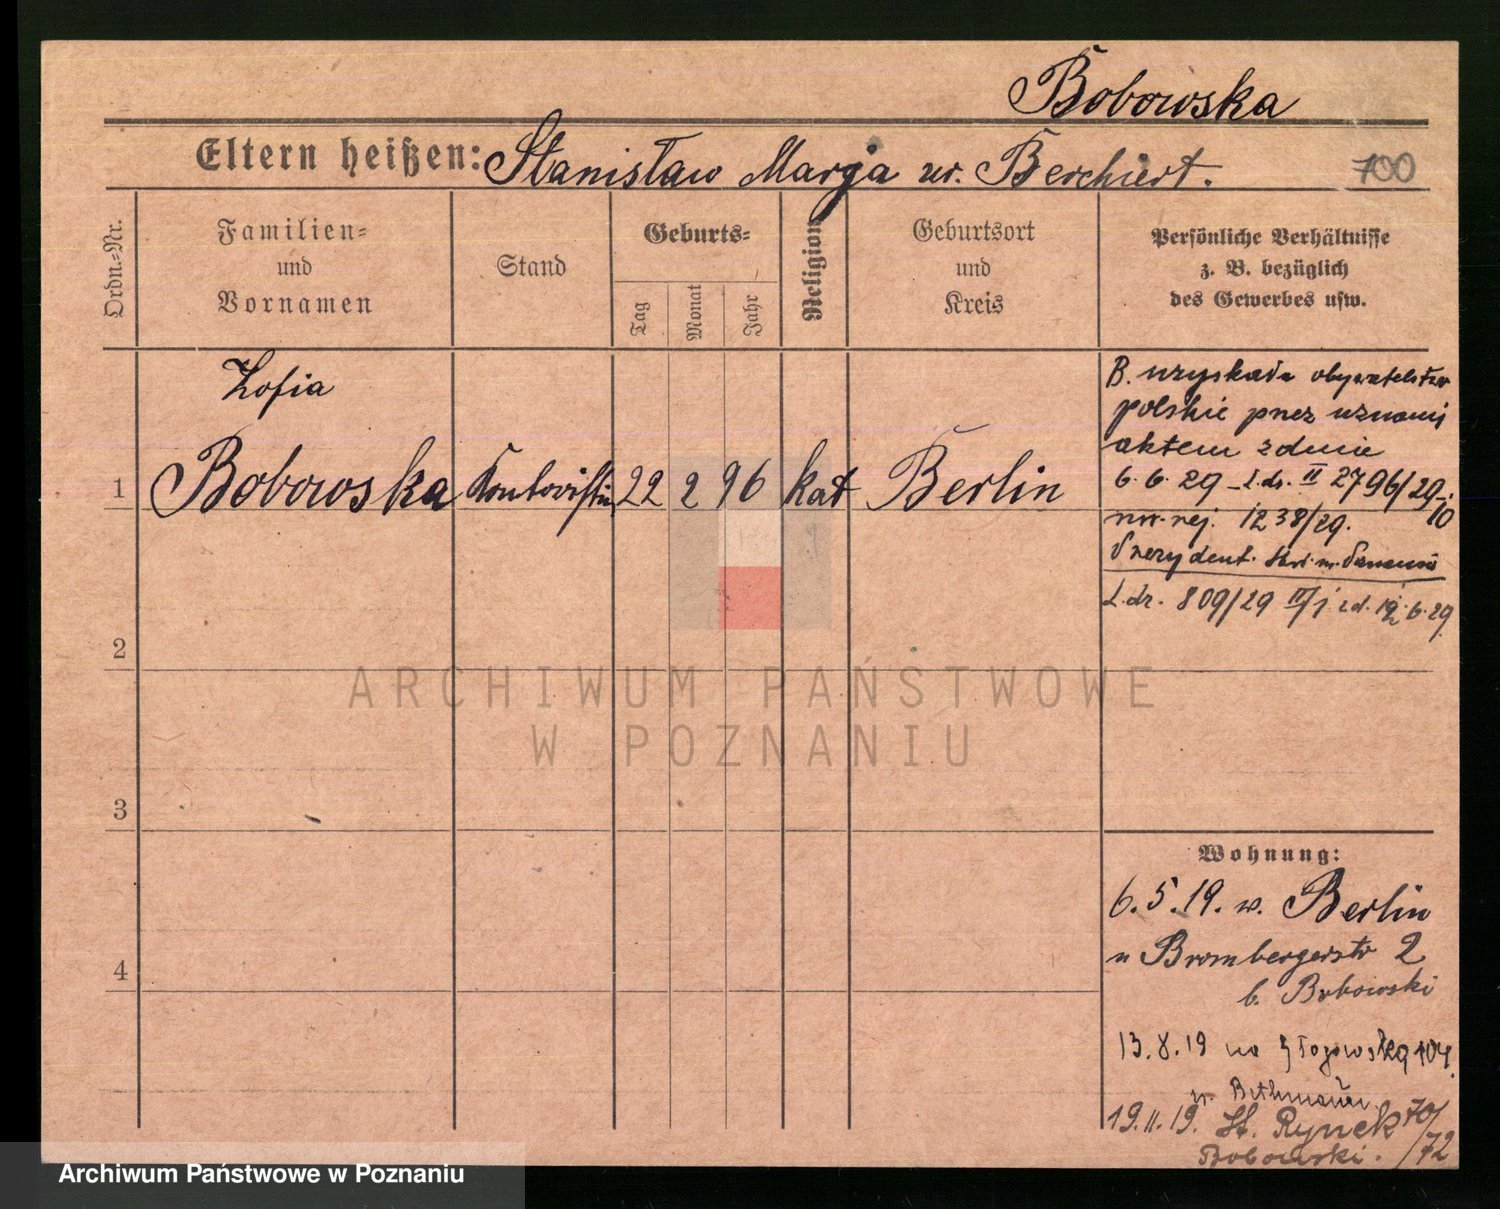 Bobowska
Eltern heißen: Stanisław Marja ur. Berchiert.
700
Ordn.-Nr.
Familien-
und
Vornamen
Stand
Geburts-
Tag
Monat
Jahr
Religion
Geburtsort
und
Kreis
Persönliche Verhältnisse
z. B. bezüglich
des Gewerbes usw.
Zofia
1 Bobowska Kontoristin 22 2 96 kat Berlin
B. uzyskała obywatelstwo
polskie przez uznanie
aktem z dnia
6.6.29 - L.dz. II 2796/29
10
nr. rej. 1238/29.
Prezydent
L.dz. 809/29 II/j. z d. 12.6.29
2
3
4
ARCHIWUM PAŃSTWOWE
W POZNANIU
Wohnung:
6.5.19. w. Berlin
n Brombergerstr 2
b. Bobowski
13.8.19 na Głogowską 104.
19.11.19. St. Rynek 70/72
Bobowski.
Archiwum Państwowe w Poznaniu